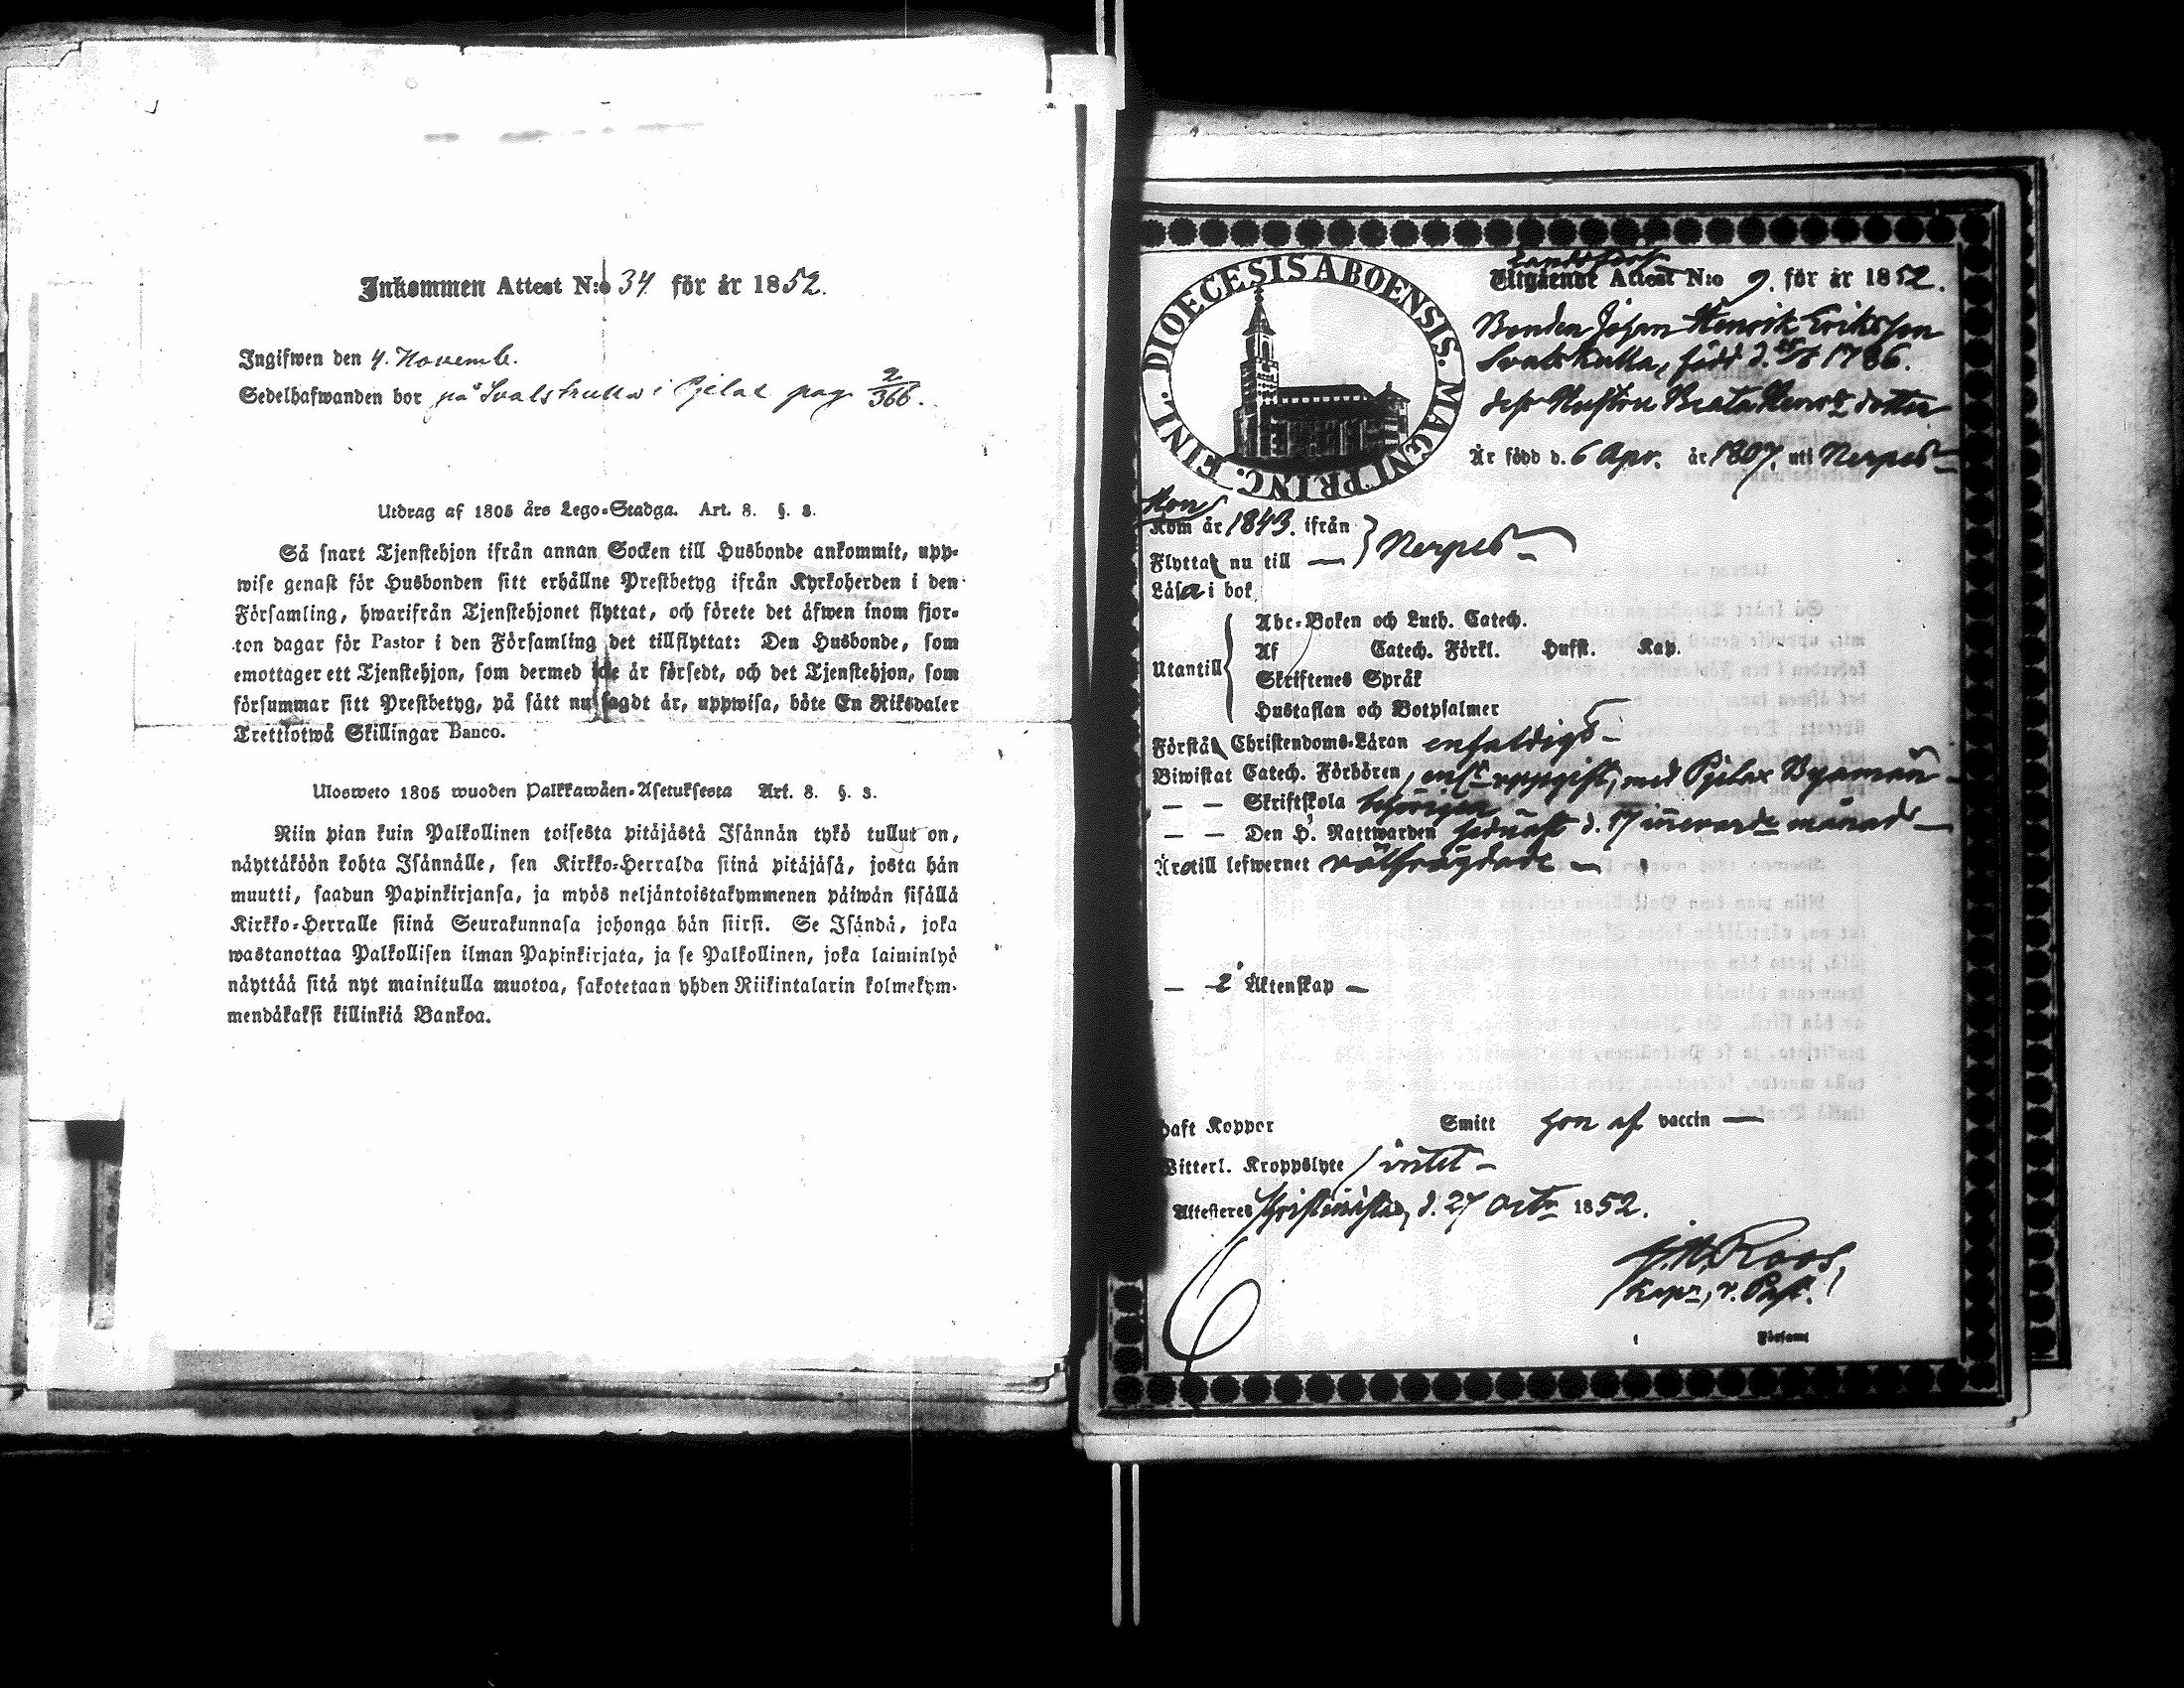 Inkommen Attest N:o 34 för år 1852.
Ingifwen den 4. Novemb.
Sedelhafwanden bor på Svalskulla i Pjelax pag 2/366.
Utdrag af 1805 års Lego-Stadga. Art. 8. §. 3.
Så snart Tjenstehjon ifrån annan Socken till Husbonde ankommit, upp-
wise genast för Husbonden sitt erhållne Prestbetyg ifrån Kyrkoherden i den
Församling, hwarifrån Tjenstehjonet flyttat, och förete det äfwen inom fjor-
ton dagar för Pastor i den Församling det tillflyttat: Den Husbonde, som
emottager ett Tjenstehjon, som dermed icke är försedt, och det Tjenstehjon, som
försummar sitt Prestbetyg, på sätt nu sagdt är, uppwisa, böte En Riksdaler
Trettiotwå Skillingar Banco.
Ulosweto 1805 wuoden Palkkawäen-Asetuksesta Art. 8. §. 3.
Niin pian kuin Palkollinen toisesta pitäjästä Isännän tykö tullut on,
näyttäköön kohta Isännälle, sen Kirkko-Herralda siinä pitäjäsä, josta hän
muutti, saadun Papinkirjansa, ja myös neljäntoistakymmenen päiwän sisällä
Kirkko-Herralle siinä Seurakunnasa johonga hän siirsi. Se Isändä, joka
wastanottaa Palkollisen ilman Papinkirjata, ja se Palkollinen, joka laiminlyö
näyttää sitä nyt mainitulla muotoa, sakotetaan yhden Riikintalarin kolmekym-
mendäkaksi killinkiä Bankoa.
DIOECESIS ABOENSIS. MAGNI PRINC. FINL.
Utgående Attest N:o 9. för år 1852.
Bonden Johan Henrik Eriksson
Svalskulla, född d. 1786.
dess Hustru Beata Henrsdotter
Är född d. 6 Apr. år 1807. uti Nerpes
Hon
Kom år 1843. ifrån
Flyttat nu till — } Nerpes
Läsa i bok
Utantill
Abc-Boken och Luth. Catech.
Af Catech. Förkl. Husst. Kap.
Skriftenes Språk
Hustaflan och Botpsalmer
Förstå Christendoms-Läran enfaldigt
Biwistat Catech. Förhören, enl. uppgift, med Pjelax Byamän
— — Skriftskola behörigen
— — Den H. Nattwarden sednast d. 17 innevarde månad —
Är a till lefwernet välfrägdade —
— i Äktenskap —
haft Koppor Smitt hon af vaccin —
Witterl. Kroppslyte intet —
Attesteres Christinestad, d. 27 Octr 1852.
Roos
Kapn, v. Past.
Församl